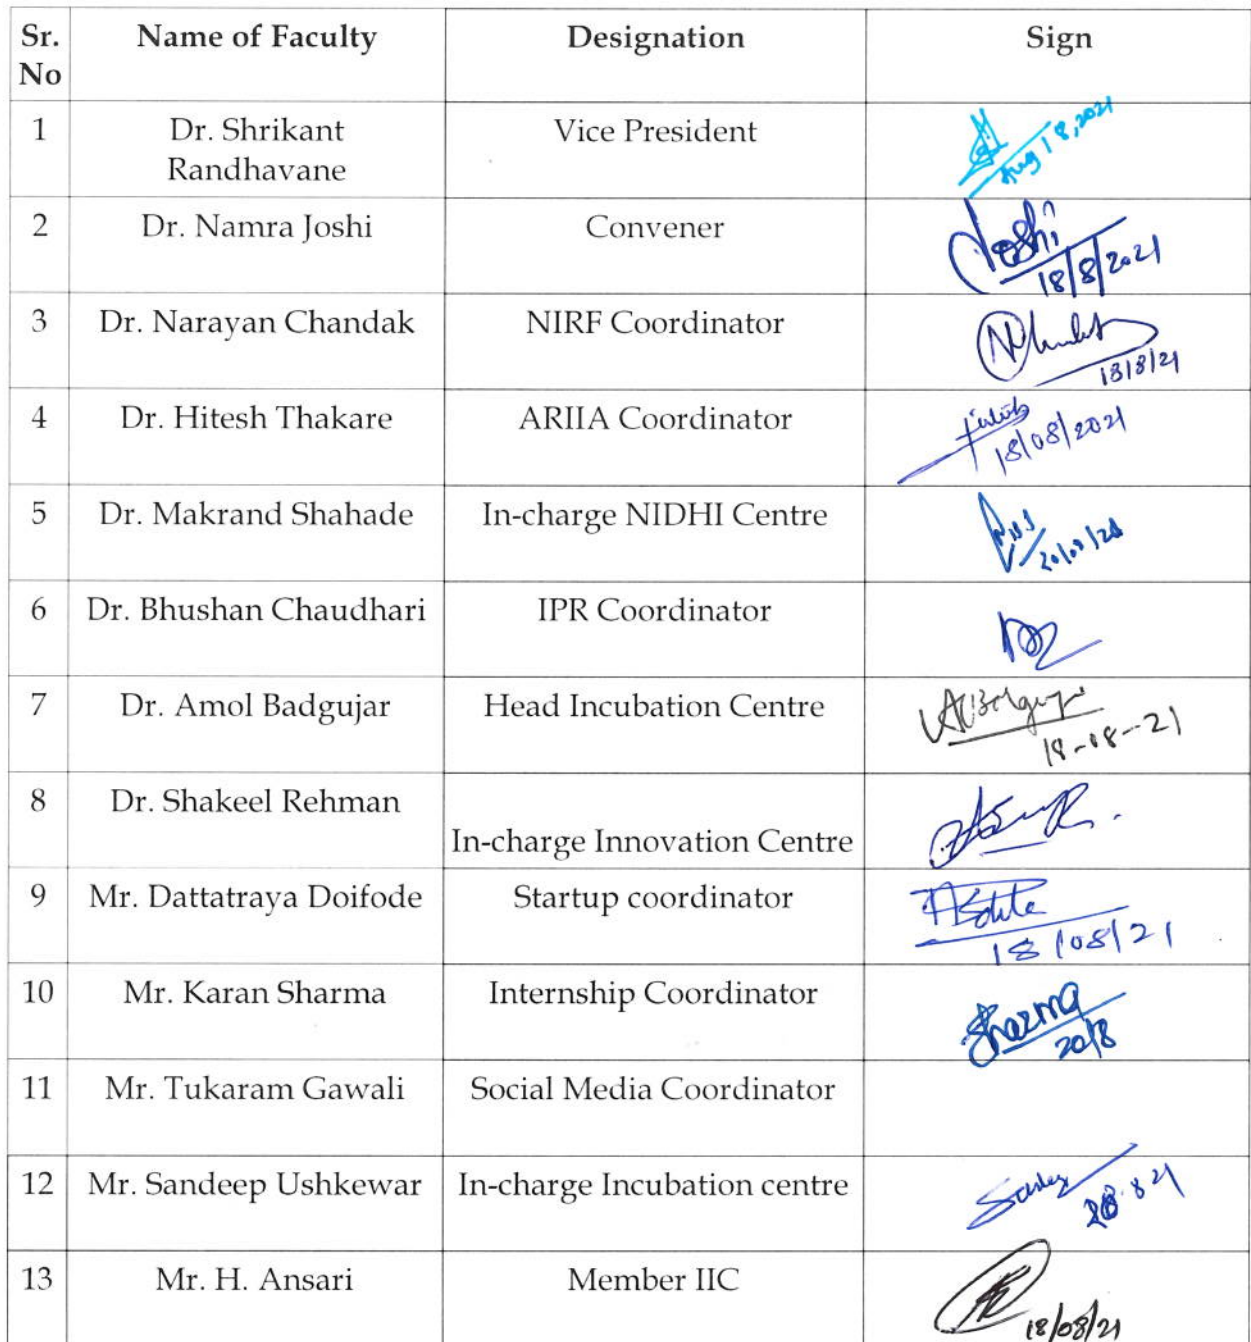 Sr. No Name of Faculty Designation Sign
1 Dr. Shrikant Randhavane Vice President
Aug 18, 2021
2 Dr. Namra Joshi Convener Joshi
18/8/2021
3 Dr. Narayan Chandak NIRF Coordinator
18/8/21
4 Dr. Hitesh Thakare ARIIA Coordinator
18/08/2021
5 Dr. Makrand Shahade In-charge NIDHI Centre
6 Dr. Bhushan Chaudhari IPR Coordinator
7 Dr. Amol Badgujar Head Incubation Centre
18-08-21
8 Dr. Shakeel Rehman
In-charge Innovation Centre
9 Mr. Dattatraya Doifode Startup coordinator
18/08/21
10 Mr. Karan Sharma Internship Coordinator Sharma
20/8
11 Mr. Tukaram Gawali Social Media Coordinator
12 Mr. Sandeep Ushkewar In-charge Incubation centre
13 Mr. H. Ansari Member IIC
18/08/21